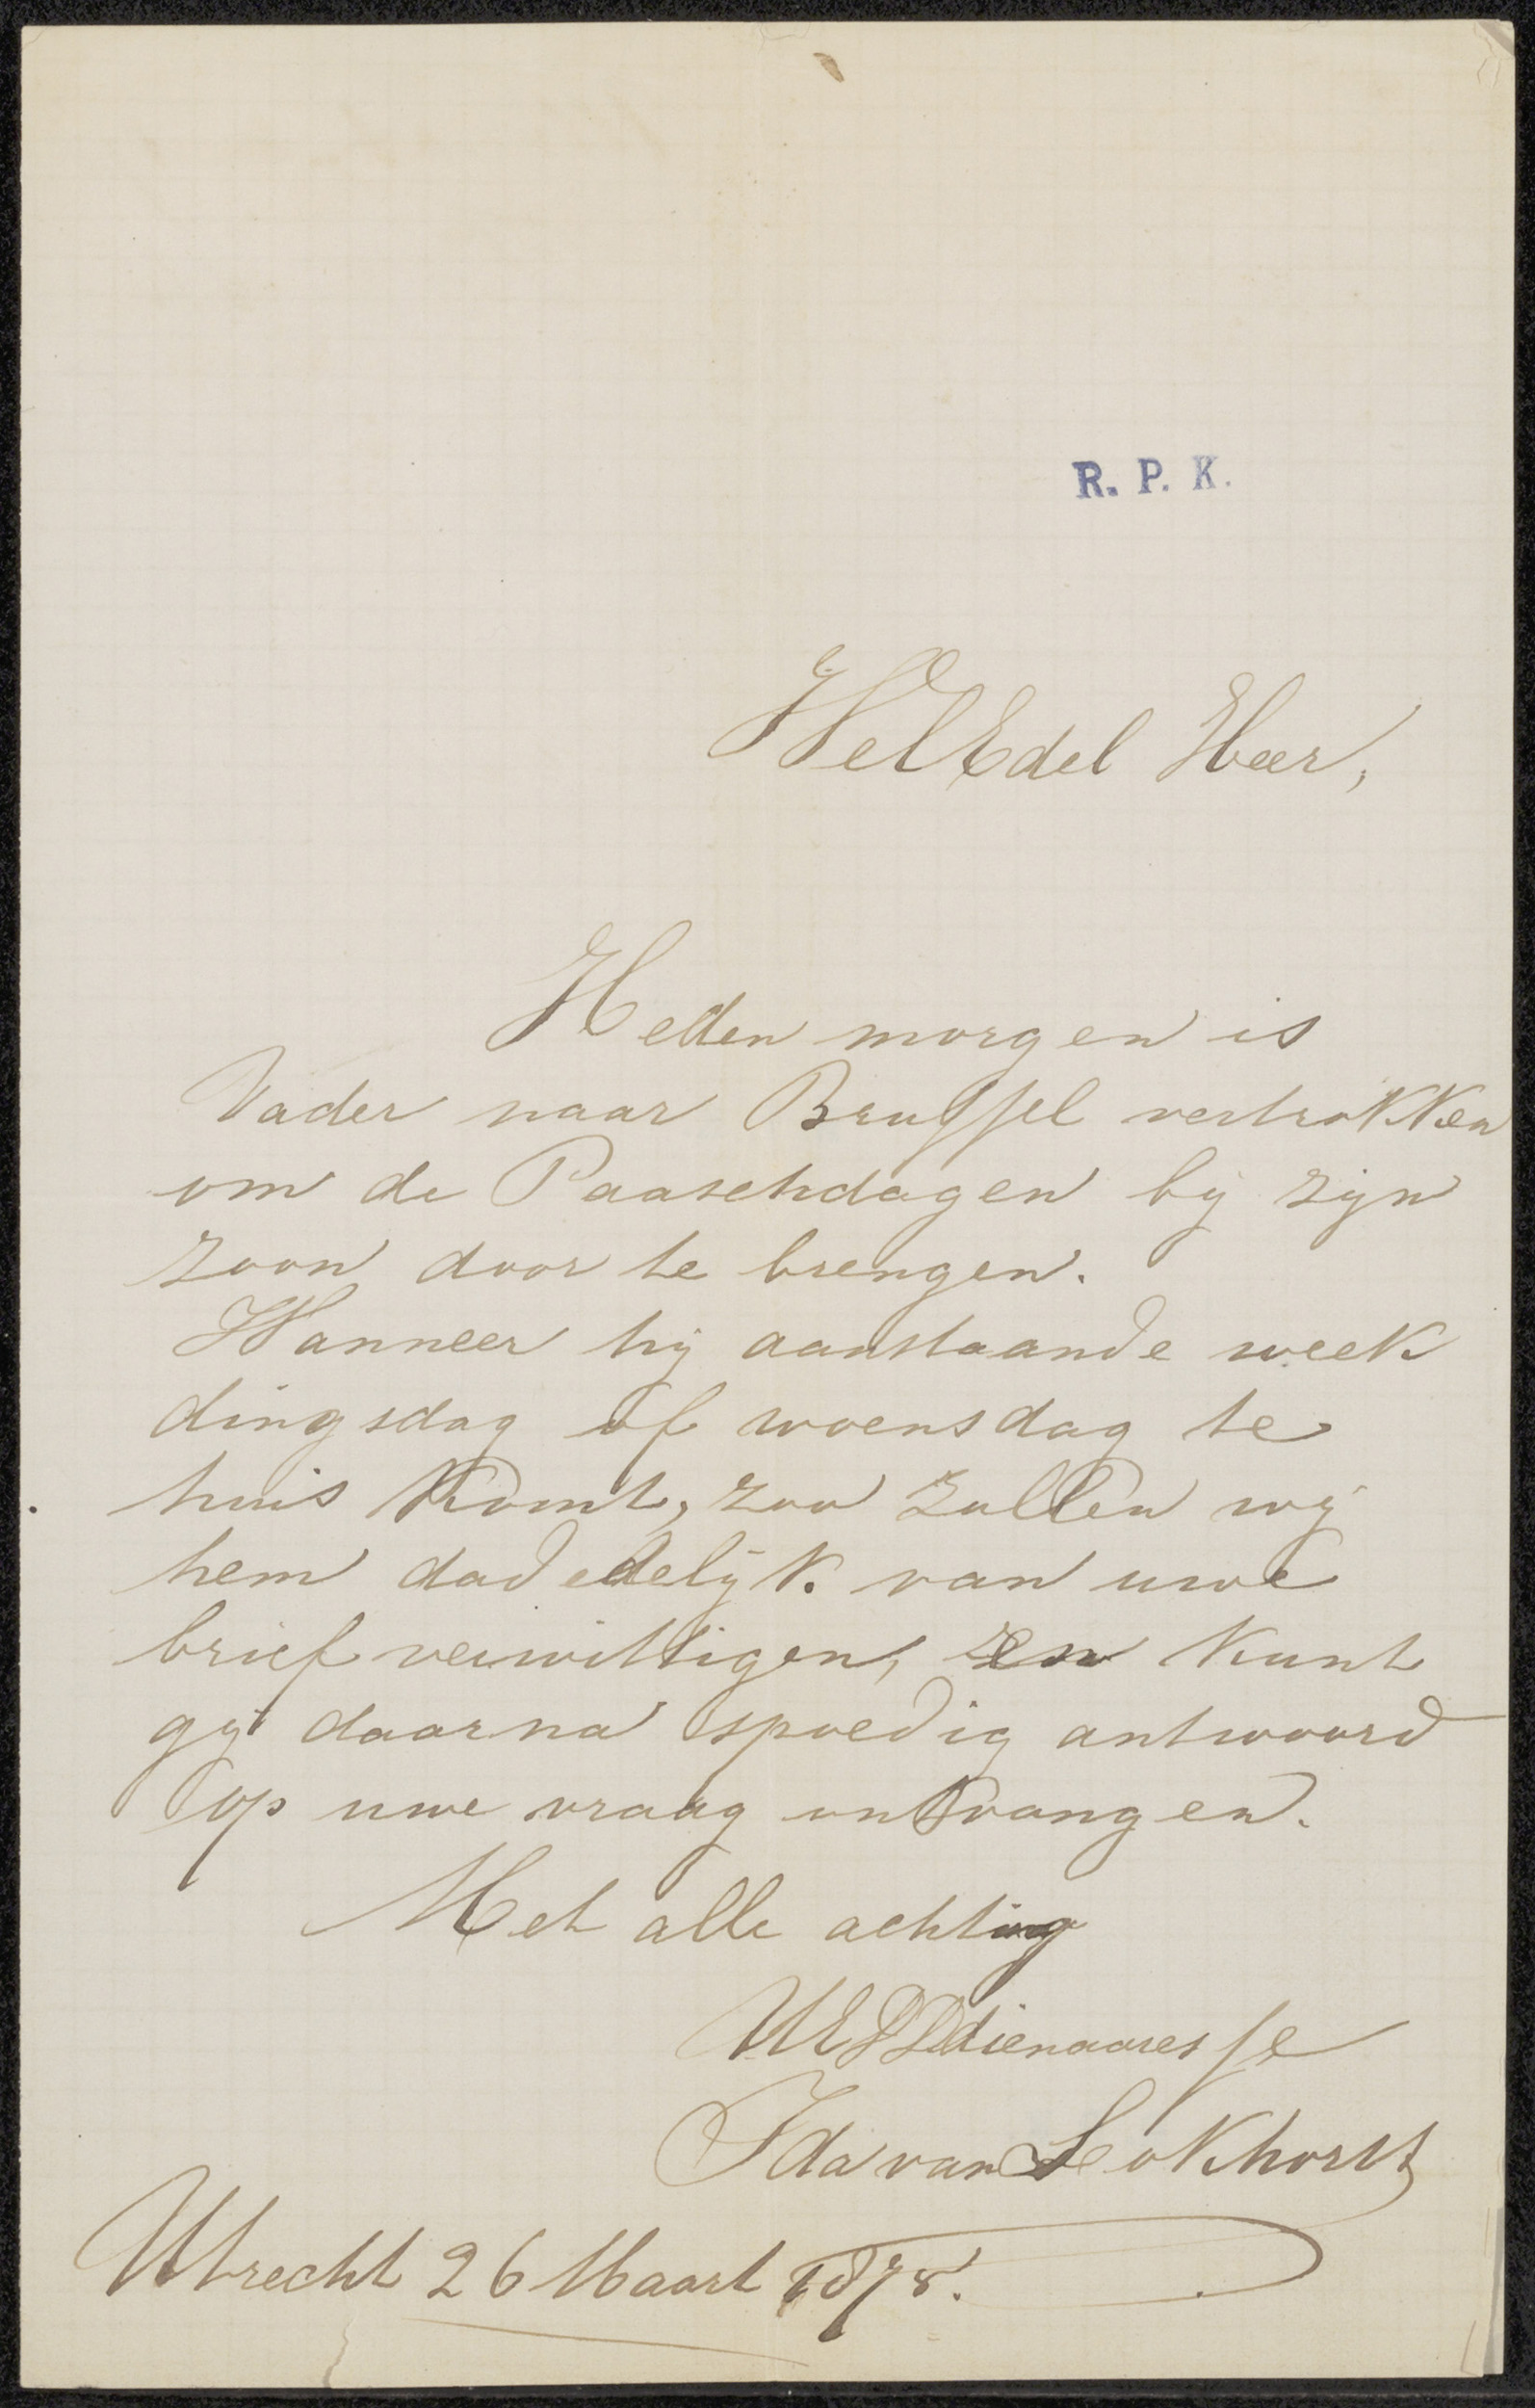 R. P. K.
WelEdel Heer,
Heden morgen is
Vader naar Brussel vertrokken
om de Paaschdagen bij zijn
zoon door te brengen.
Wanneer hij aanstaande week
dingsdag of woensdag te
huis komt, zoo zullen wij
hem dadelijk van uwe
brief verwittigen, en kunt
gij daarna spoedig antwoord
op uwe vraag ontvangen.
Met alle achting
UEDDdienaaresse
Ida van Lokhorst
Utrecht 26 Maart 1875.